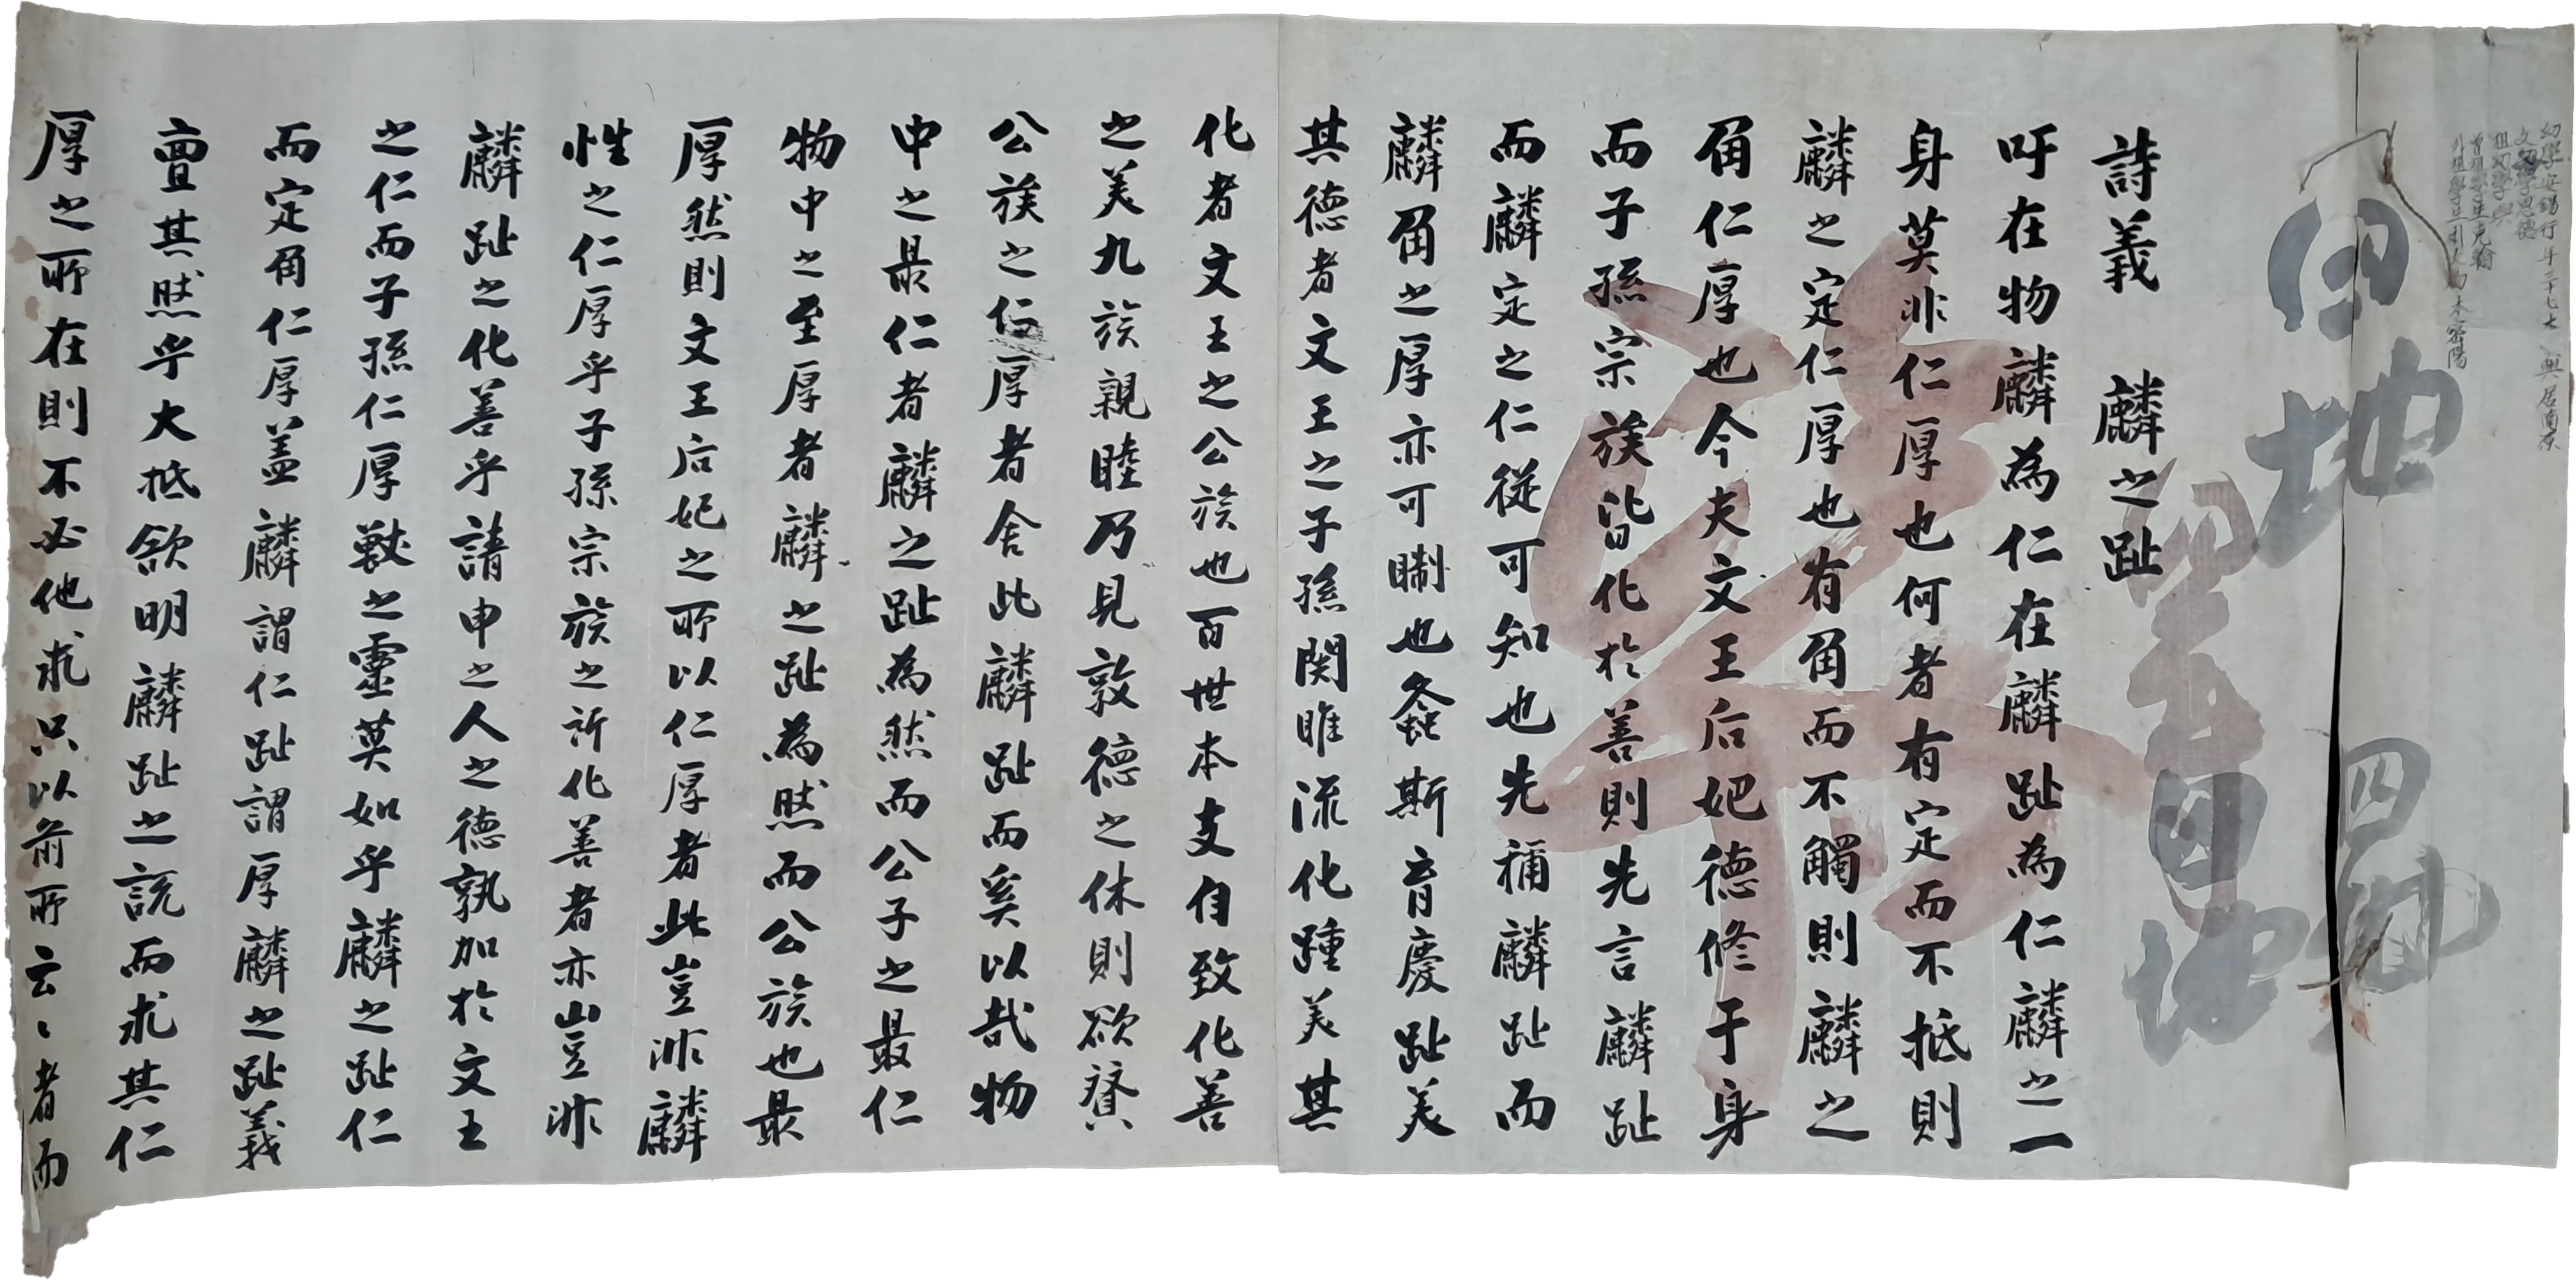 幼學安錫行年三十七 本 興居
父幼學思德
祖幼學
曾祖學生克翰
外祖學生 本密陽
日地
四
詩義 麟之趾
吁在物麟為仁在麟趾為仁麟之一
身莫非仁厚也何者有定而不抵則
麟之定仁厚也有角而不觸則麟之
角仁厚也今夫文王后妃德修于身
而子孫宗族皆化於善則先言麟趾
而麟定之仁從可知也先稱麟趾而
麟角之厚亦可矙也螽斯育慶趾美
其德者文王之子孫関雎流化踵美其
化者文王之公族也百世本支自致化善
之美九族親睦乃見敦德之休則欲賛
公族之仁厚者舍此麟趾而奚以哉物
中之最仁者麟之趾為然而公子之最仁
物中之至厚者麟之趾為然而公族也最
厚然則文王后妃之所以仁厚者此豈非麟
性之仁厚乎子孫宗族之所化善者亦豈非
麟趾之化善乎請申之人之德孰加於文王
之仁而子孫仁厚獸之靈莫如乎麟之趾仁
而定角仁厚盖麟謂仁趾謂厚麟之趾義
亶其然乎大抵欲明麟趾之說而求其仁
厚之所在則不必他求只以前所云〻者而